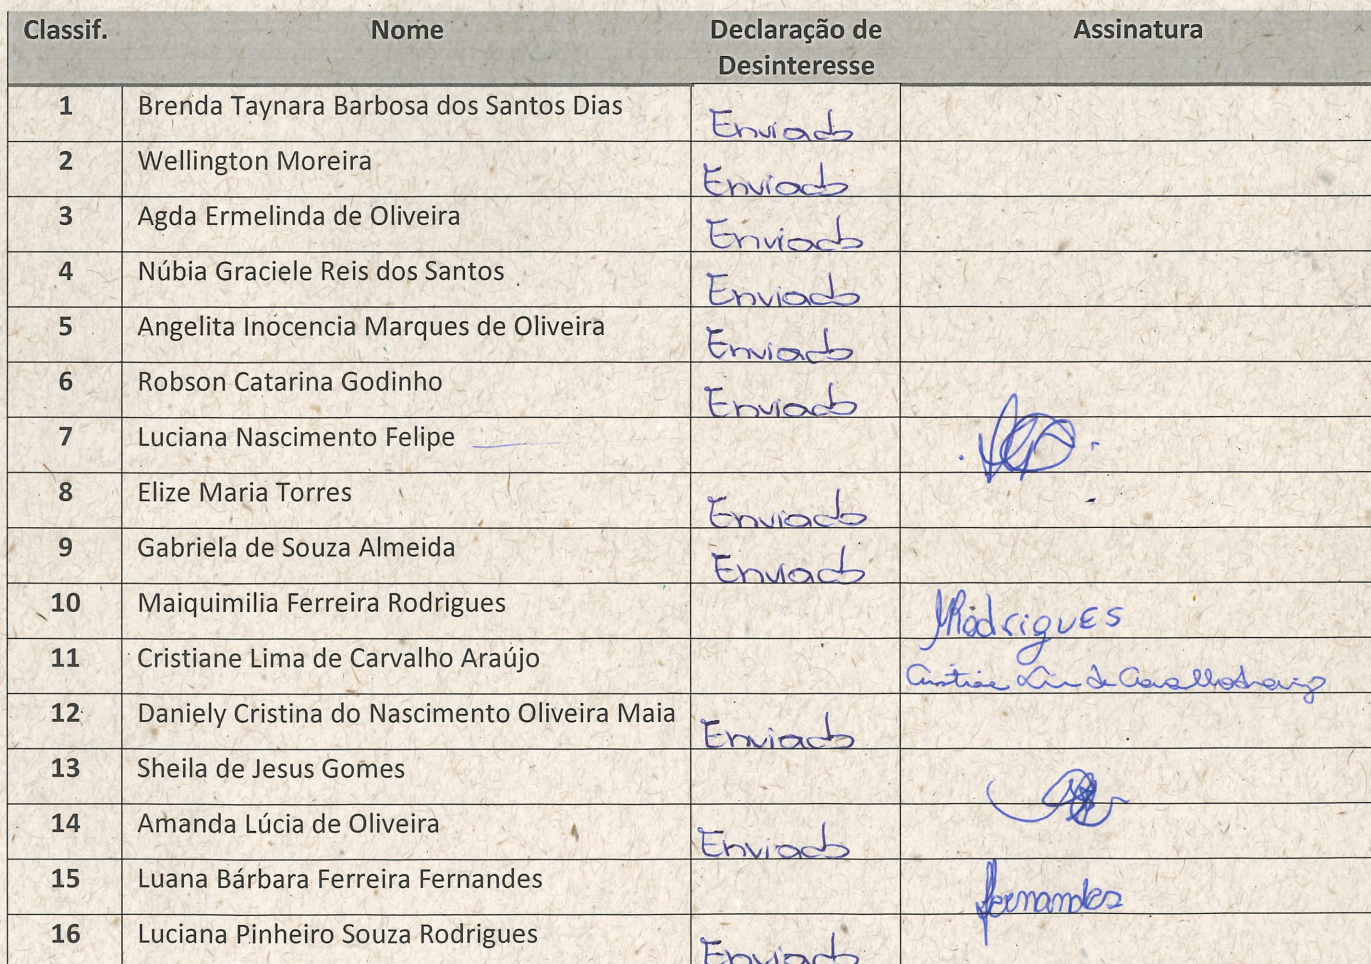 Classif. Nome Declaração de Desinteresse Assinatura
1 Brenda Taynara Barbosa dos Santos Dias Enviado
2 Wellington Moreira Enviado
3 Agda Ermelinda de Oliveira Enviado
4 Núbia Graciele Reis dos Santos Enviado
5 Angelita Inocencia Marques de Oliveira Enviado
6 Robson Catarina Godinho Enviado
7 Luciana Nascimento Felipe
8 Elize Maria Torres Enviado
9 Gabriela de Souza Almeida Enviado
10 Maiquimilia Ferreira Rodrigues MRodrigues
11 Cristiane Lima de Carvalho Araújo Cristiane Lima de Carvalho Araujo
12 Daniely Cristina do Nascimento Oliveira Maia Enviado
13 Sheila de Jesus Gomes
14 Amanda Lúcia de Oliveira Enviado
15 Luana Bárbara Ferreira Fernandes Fernandes
16 Luciana Pinheiro Souza Rodrigues Enviado